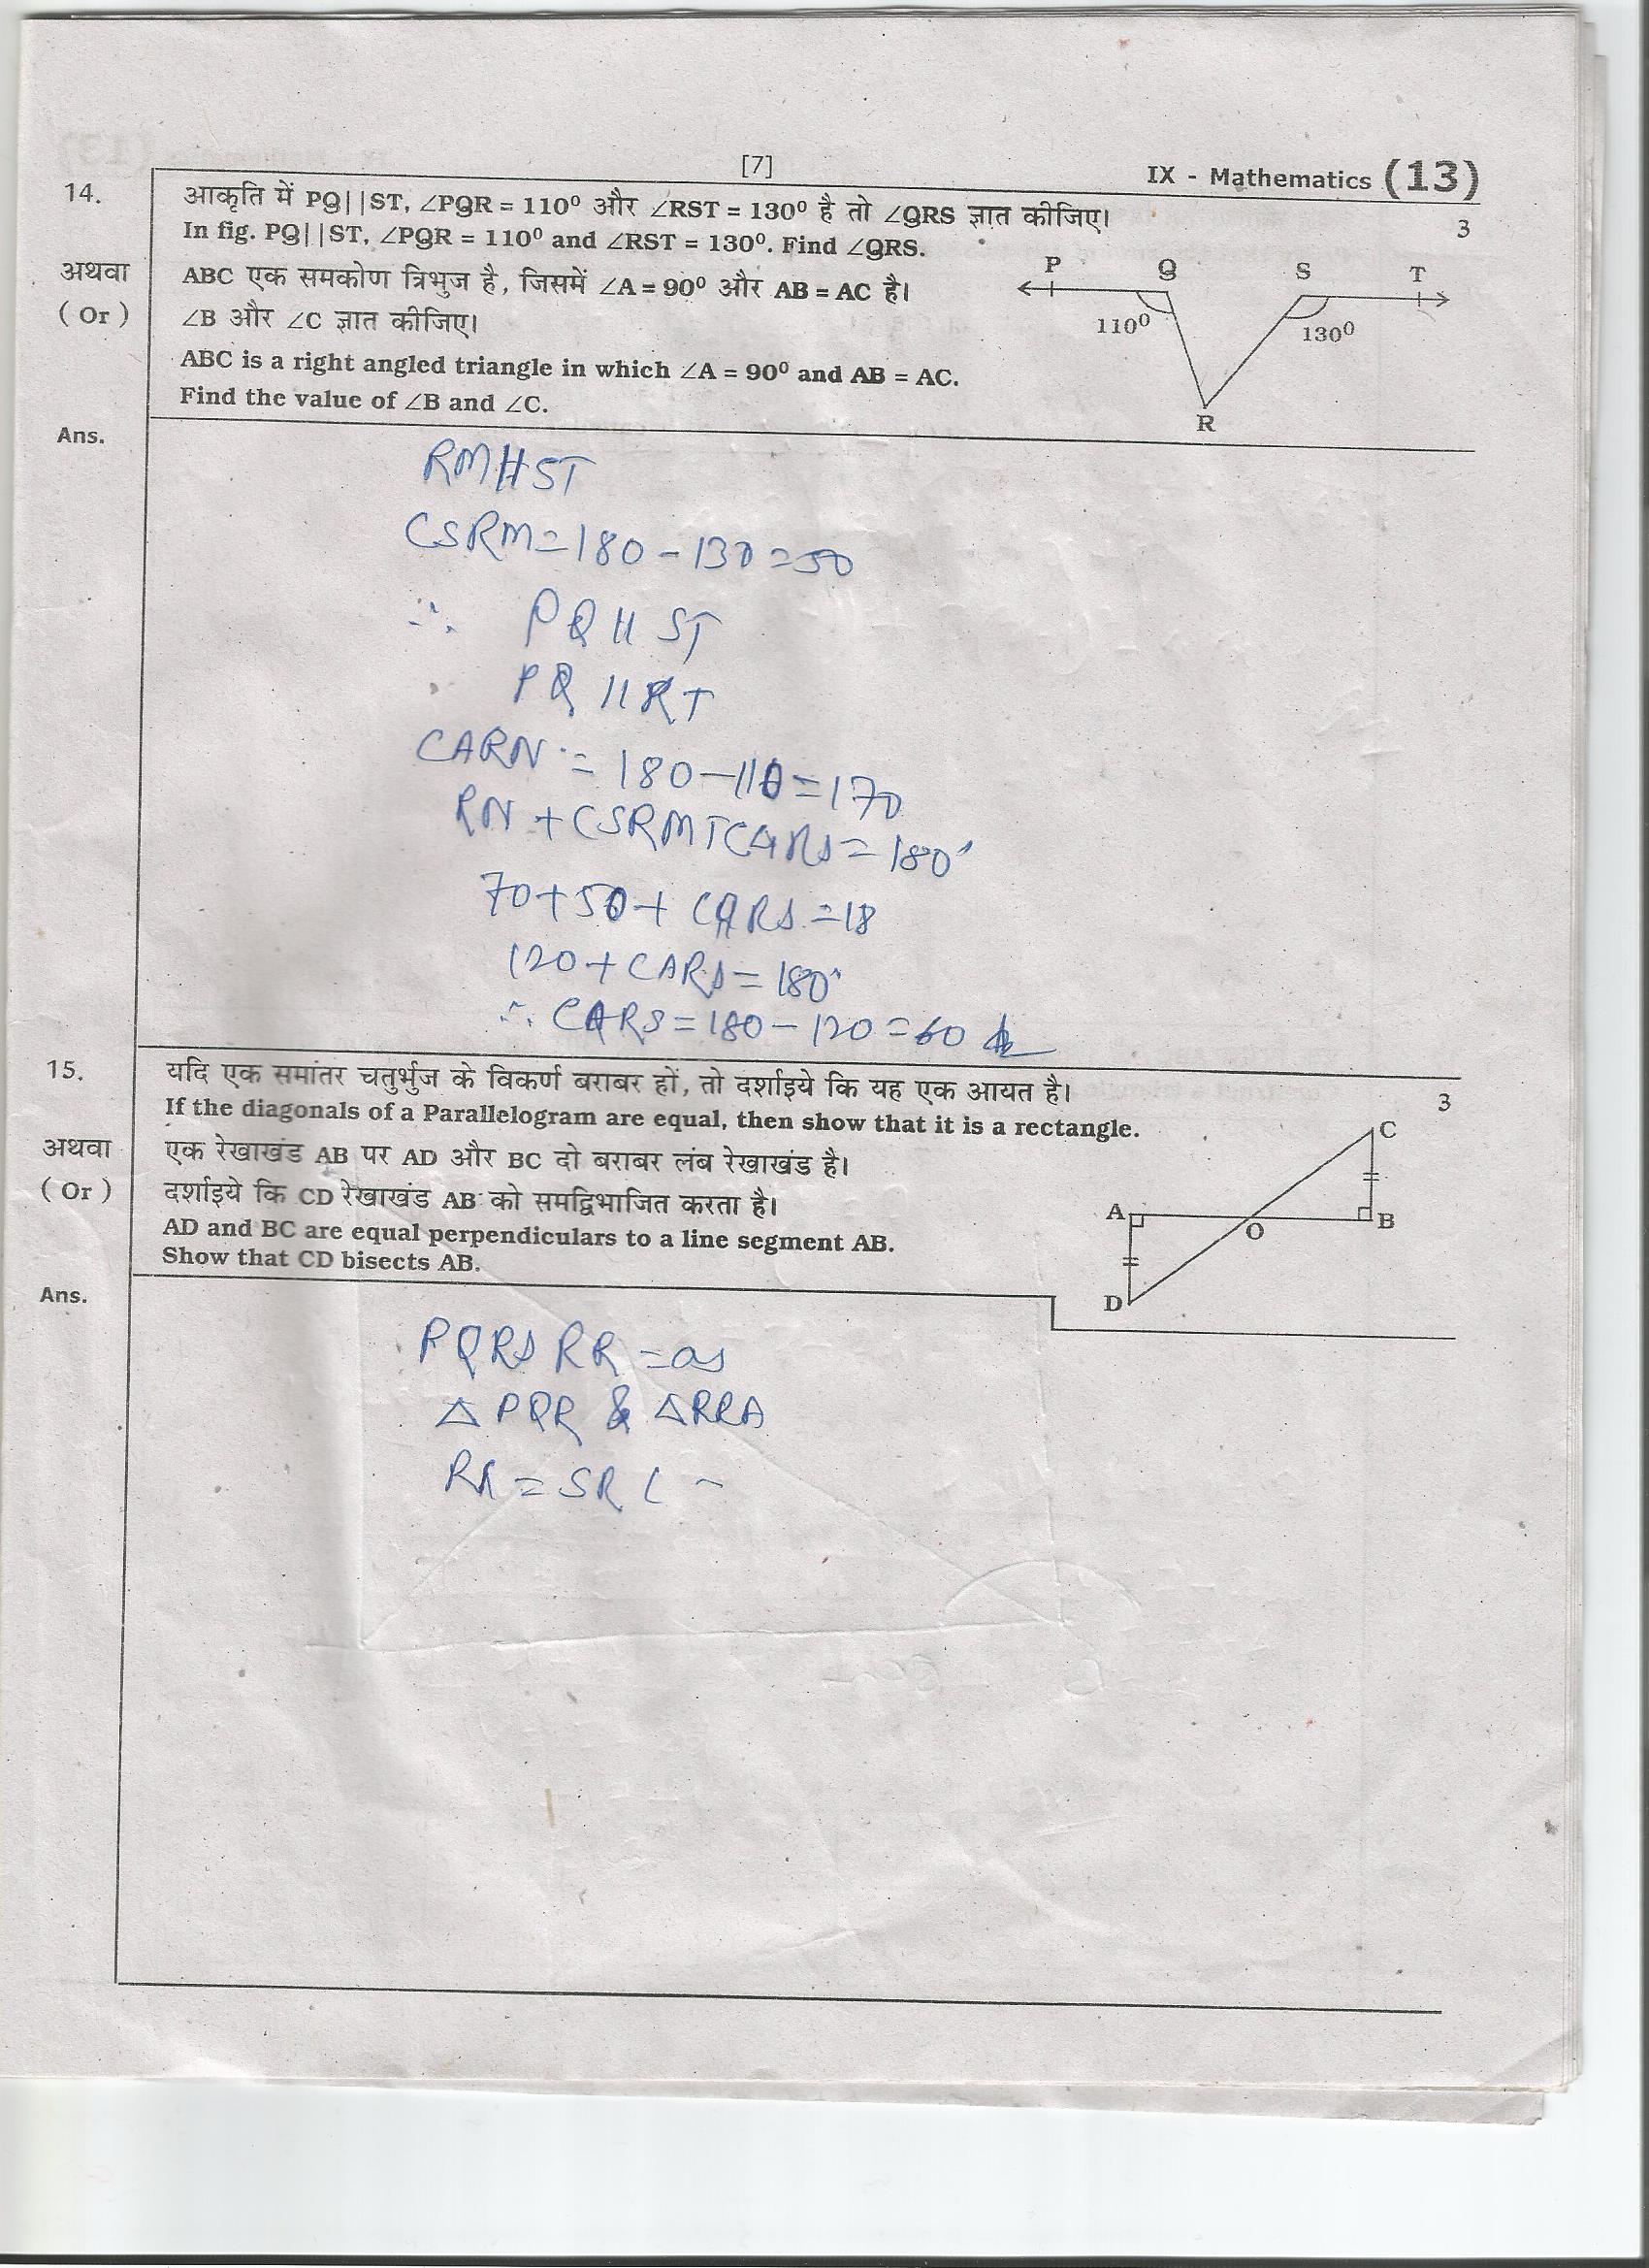 [7]
IX - Mathematics (13)
14. आकृति में PQ||ST, ∠PQR = 110⁰ और ∠RST = 130⁰ है तो ∠QRS ज्ञात कीजिए। 3
In fig. PQ||ST, ∠PQR = 110⁰ and ∠RST = 130⁰. Find ∠QRS.
अथवा ABC एक समकोण त्रिभुज है, जिसमें ∠A = 90⁰ और AB = AC है।
( Or ) ∠B और ∠C ज्ञात कीजिए।
ABC is a right angled triangle in which ∠A = 90⁰ and AB = AC.
Find the value of ∠B and ∠C.
P Q S T
110⁰ 130⁰
R
Ans.
RM||ST
CSRM=180-130=50
∴ PQ || ST
PQ || RT
CARN = 180-110=170
RN + CSRM+CQRS=180°
70+50+ CQRS =18
120+CARS=180°
∴ CARS=180-120=60
15. यदि एक समांतर चतुर्भुज के विकर्ण बराबर हों, तो दर्शाइये कि यह एक आयत है। 3
If the diagonals of a Parallelogram are equal, then show that it is a rectangle.
अथवा एक रेखाखंड AB पर AD और BC दो बराबर लंब रेखाखंड है।
( Or ) दर्शाइये कि CD रेखाखंड AB को समद्विभाजित करता है।
AD and BC are equal perpendiculars to a line segment AB.
Show that CD bisects AB.
C
A O B
D
Ans.
PQRS RR =
△ PQR & △RRA
= SR (